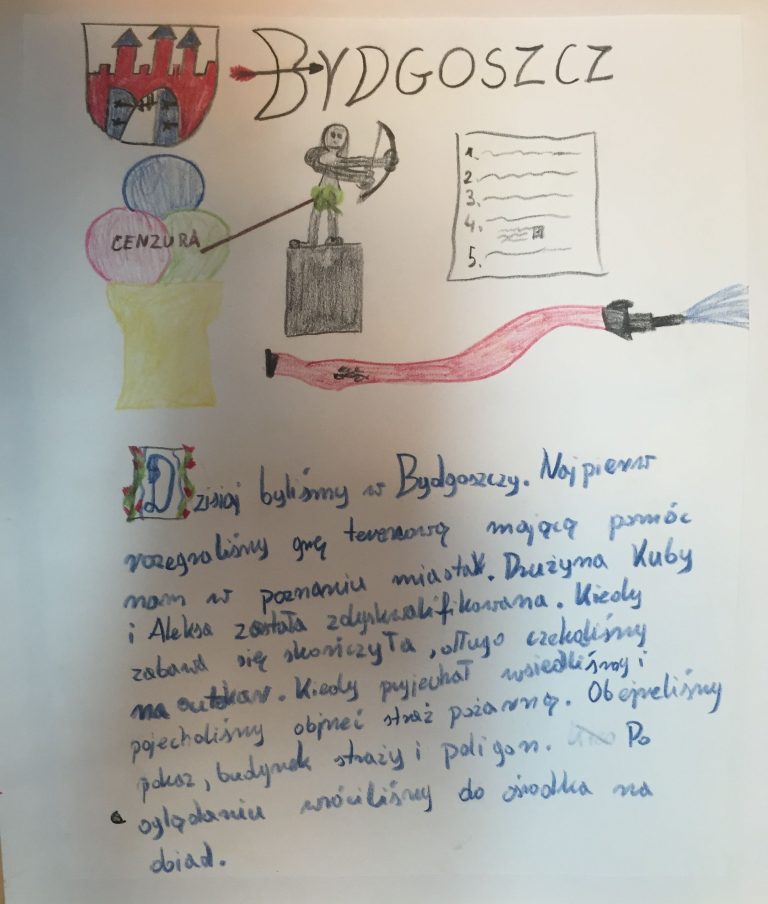 BYDGOSZCZ
1.
2.
3.
4.
5.
CENZURA
Dzisiaj byliśmy w Bydgoszczy. Najpierw
rozegraliśmy grę terenową mającą pomóc
nam w poznaniu miastak. Drużyna Kuby
i Aleksa została zdyskwalifikowana. Kiedy
zabawa się skończyła, długo czekaliśmy
na autokar. Kiedy pryjechał wsiedliśmy i
pojechaliśmy objrzeć straż pożarną. Obejrzeliśmy
pokaz, budynek straży i poligon. Po
oglądaniu wróciliśmy do ośrodka na
obiad.